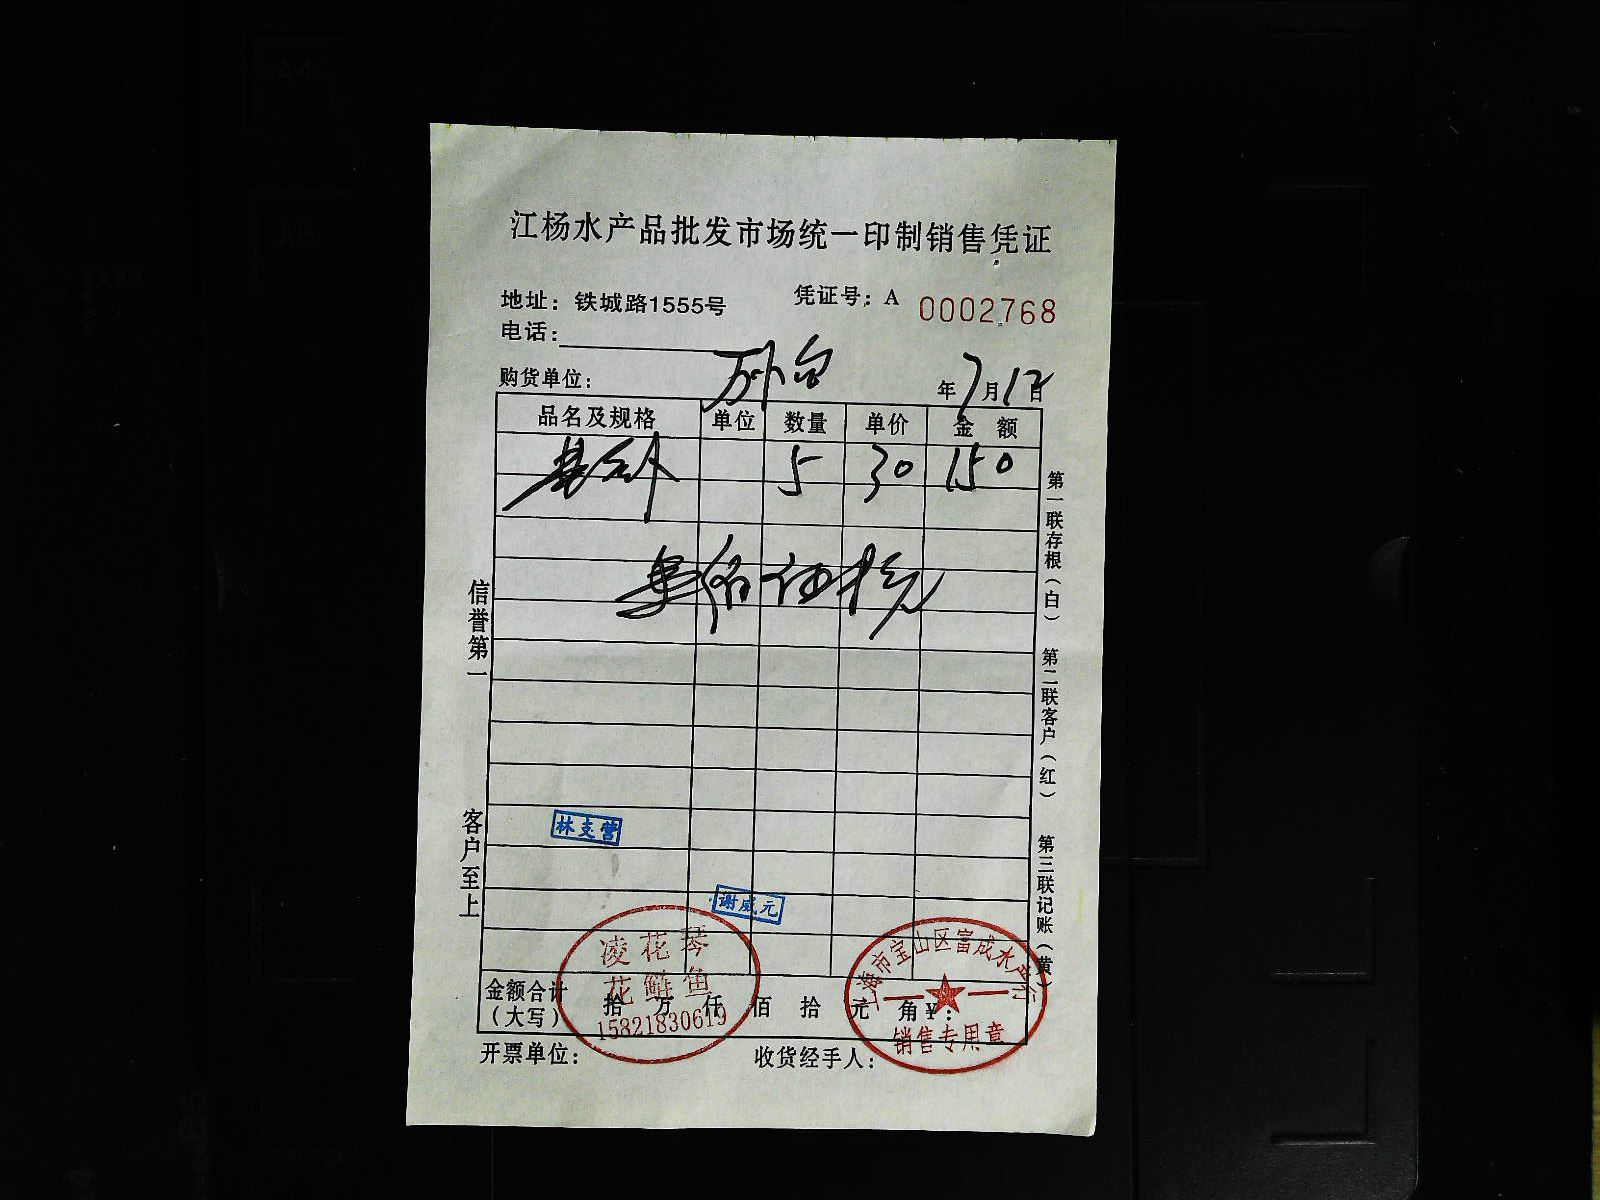 江杨水产品批发市场统一印制销售凭证
地址：铁城路1555号
凭证号：A 0002768
电话：
购货单位：
年7月12日
品名及规格 单位 数量 单价 金额
5 30 150
信誉第一
客户至上
第一联存根（白）
第二联客户（红）
第三联记账（黄）
林支营
谢威元
凌花琴
花鲢鱼
15821830619
上海市宝山区富成水产行
销售专用章
金额合计（大写） 拾 万 仟 佰 拾 元 角 ¥：
开票单位： 收货经手人：